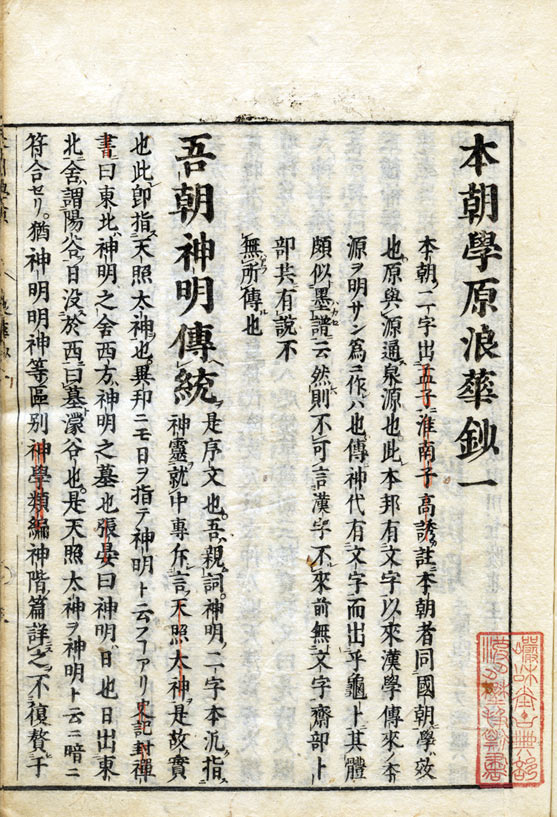 本朝學原浪華鈔一
本朝ノ二字出孟子淮南子高誘註本朝者同國朝學ハ效
也原與源通泉源也此本邦有文字以來漢學傳來ノ本
源ヲ明サン爲ニ作ハ也傳神代有文字而出乎龜卜其體
頗似墨譜云然則不可言漢字不來前無文字齋部卜
部共有說不
無所傳也
吾朝神明傳統
是序文也吾ハ親詞神明ノ二字本汎指
神靈就中專斥言天照太神是故實
也此卽指天照太神也異邦ニモ日ヲ指テ神明ト云フヿアリ史記封禪
書曰東北神明之舍西方神明之墓也張晏曰神明ハ日也日出東
北舍謂陽谷日沒於西曰墓濛谷也是天照太神ヲ神明ト云ニ暗ニ
符合セリ猶神明明神等區別神學類編神階篇詳之不復贅于